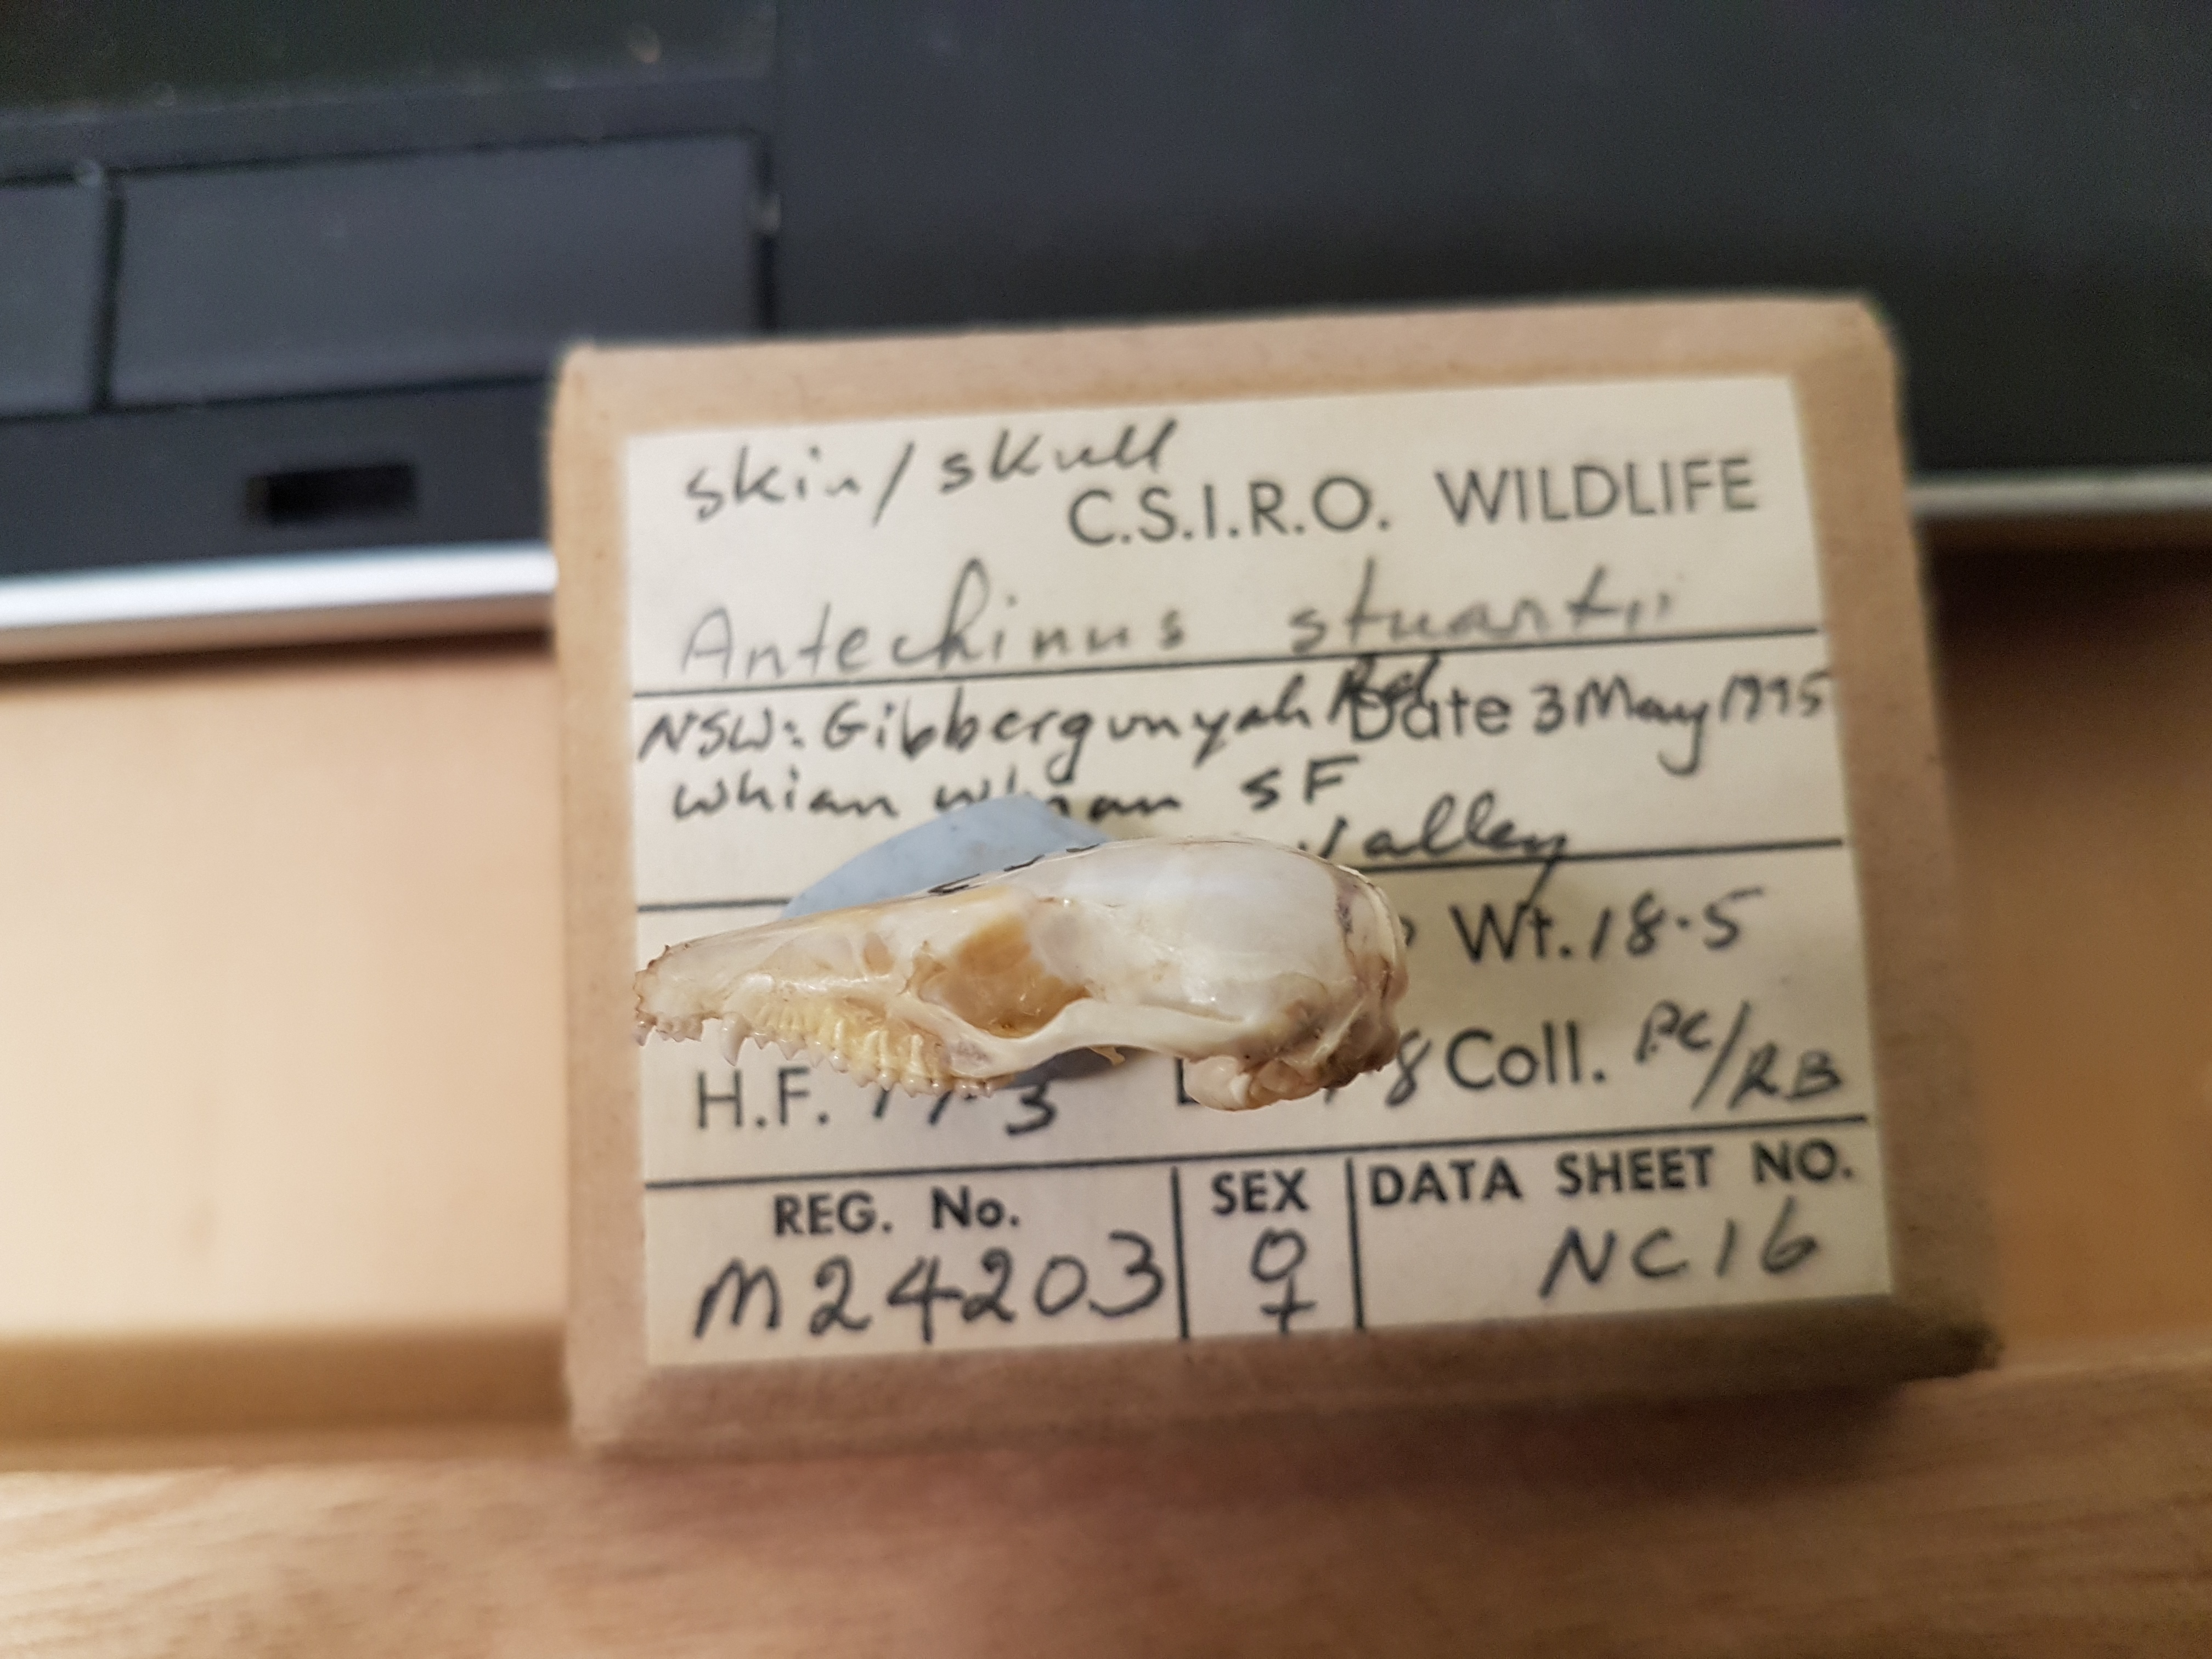 skin/skull
C.S.I.R.O. WILDLIFE
Antechinus stuartii
NSW: Gibbergunyah Rd Date 3 May 1995
Whian Whian SF
Valley
Wt. 18.5
H.F. Coll. PC/RB
REG. No. SEX DATA SHEET NO.
M24203 ♀ NC16